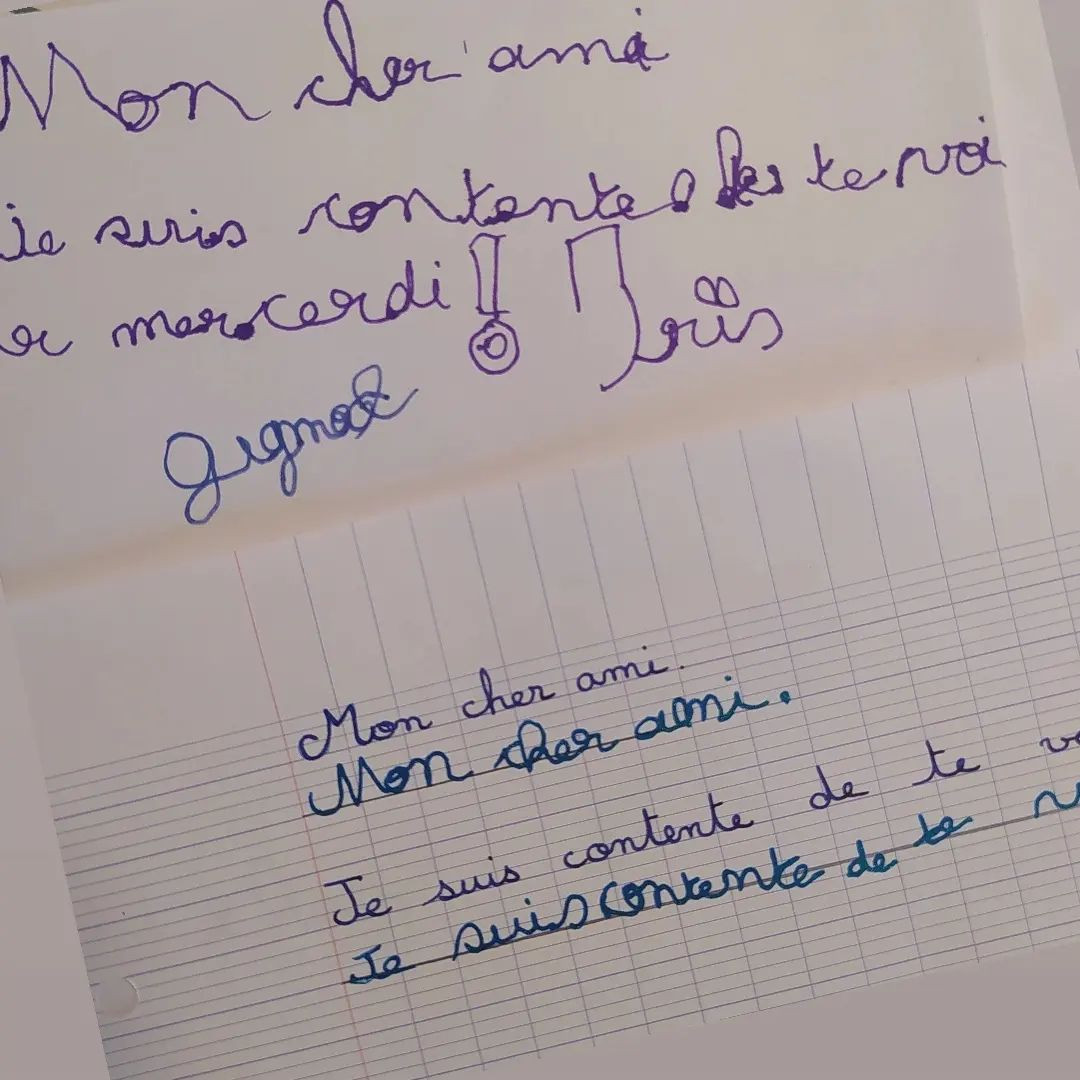 Mon cher ami
je suis contente de te voi
r mercerdi ! Iris
Mon cher ami.
Mon cher ami.
Je suis contente de te
Je suis contente de te